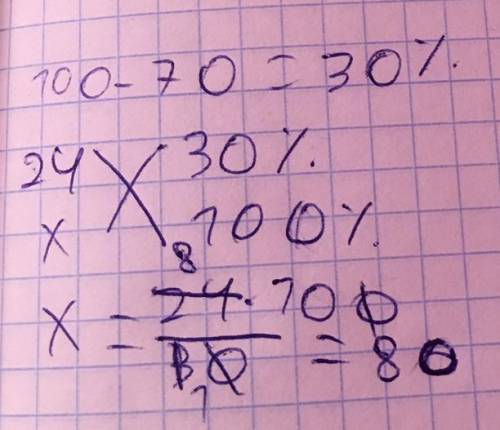 100-70=30%
24 30%
x 100%
8
x = 24·100 = 80
30
1